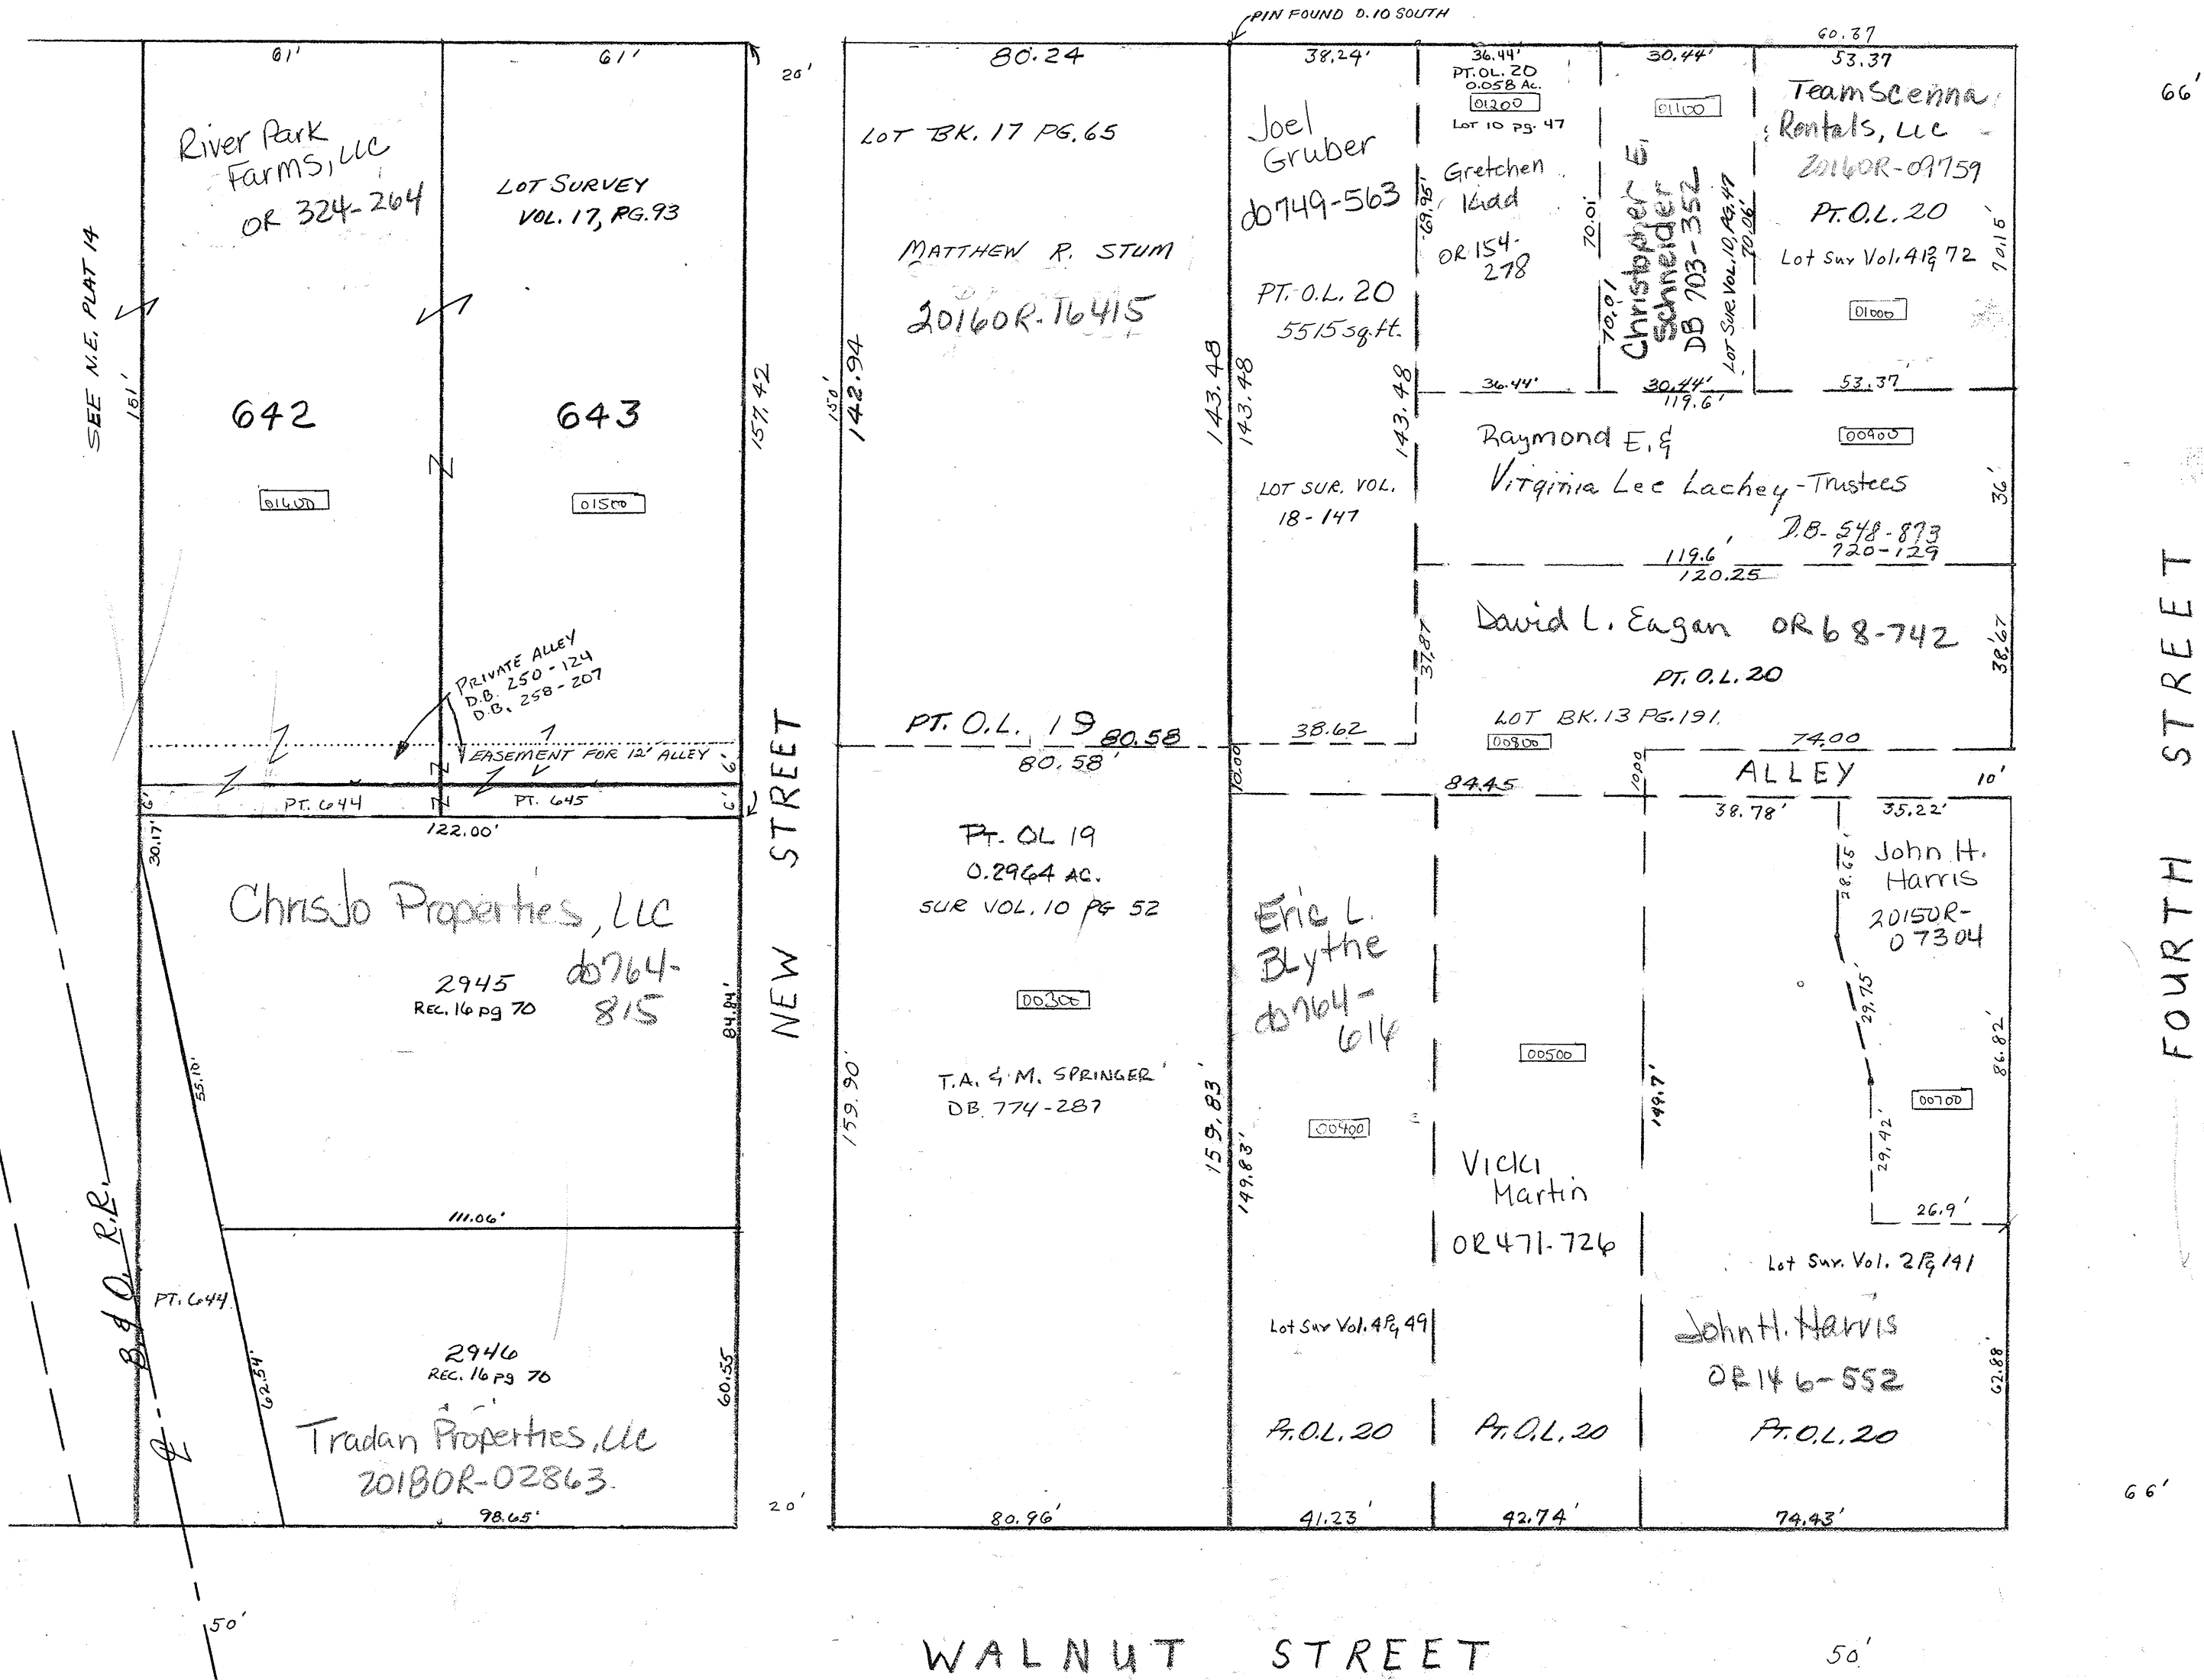 PIN FOUND 0.10 SOUTH
61'
61'
20'
80.24
38.24'
36.44'
30.44'
60.37
53.37
66'
River Park
Farms, LLC
OR 324-264
LOT SURVEY
VOL. 17, PG. 93
SEE N.E. PLAT 14
151'
642
643
01600
01500
157.42
PRIVATE ALLEY
D.B. 250-124
D.B. 258-207
EASEMENT FOR 12' ALLEY
6'
6'
6'
PT. 644
PT. 645
122.00'
30.17'
ChrisJo Properties, LLC
db764-
815
2945
REC. 16 pg 70
84.84'
55.10'
111.06'
B. & O. R.R.
PT. 644
62.54'
2946
REC. 16 pg 70
60.55
Tradan Properties, LLC
2018OR-02863
98.65'
50'
NEW STREET
20'
LOT BK. 17 PG. 65
MATTHEW R. STUM
2016OR-16415
150'
142.94
143.48
PT. O.L. 19
80.58
80.58'
PT. OL 19
0.2964 AC.
SUR VOL. 10 PG 52
00300
T.A. & M. SPRINGER
DB. 774-287
159.90'
159.83'
80.96'
Joel
Gruber
db749-563
PT. O.L. 20
5515 sq.ft.
143.48
143.48
LOT SUR. VOL.
18-147
38.62
10.00
PT. OL. 20
0.058 Ac.
01200
Lot 10 pg. 47
Gretchen
Kidd
OR 154-
278
69.95'
70.01'
36.44'
01100
Christopher E.
Schneider
DB 703-352
LOT SUR. VOL. 10, PG. 47
70.01
70.06'
30.44'
Team Scenna
Rentals, LLC
2016OR-09759
PT. O.L. 20
Lot Sur Vol. 4 Pg 72
01000
70.15'
53.37'
119.6'
Raymond E. &
Virginia Lee Lachey-Trustees
00900
D.B. 548-873
720-129
36'
119.6'
120.25
David L. Eagan OR 68-742
PT. O.L. 20
37.87
38.67
LOT BK. 13 PG. 191
00800
74.00
84.45
10.00
ALLEY
10'
38.78'
35.22'
Eric L.
Blythe
db764-
614
00400
149.83'
Lot Sur Vol. 4 Pg 49
Pt. O.L. 20
41.23'
00500
Vicki
Martin
OR 471-726
149.7'
Pt. O.L. 20
42.74'
28.65'
29.75'
29.42'
John H.
Harris
2015OR-
07304
86.82'
00700
26.9'
Lot Sur. Vol. 2 Pg 141
John H. Harris
OR 146-552
62.88
Pt. O.L. 20
74.43'
FOURTH STREET
66'
WALNUT STREET
50'